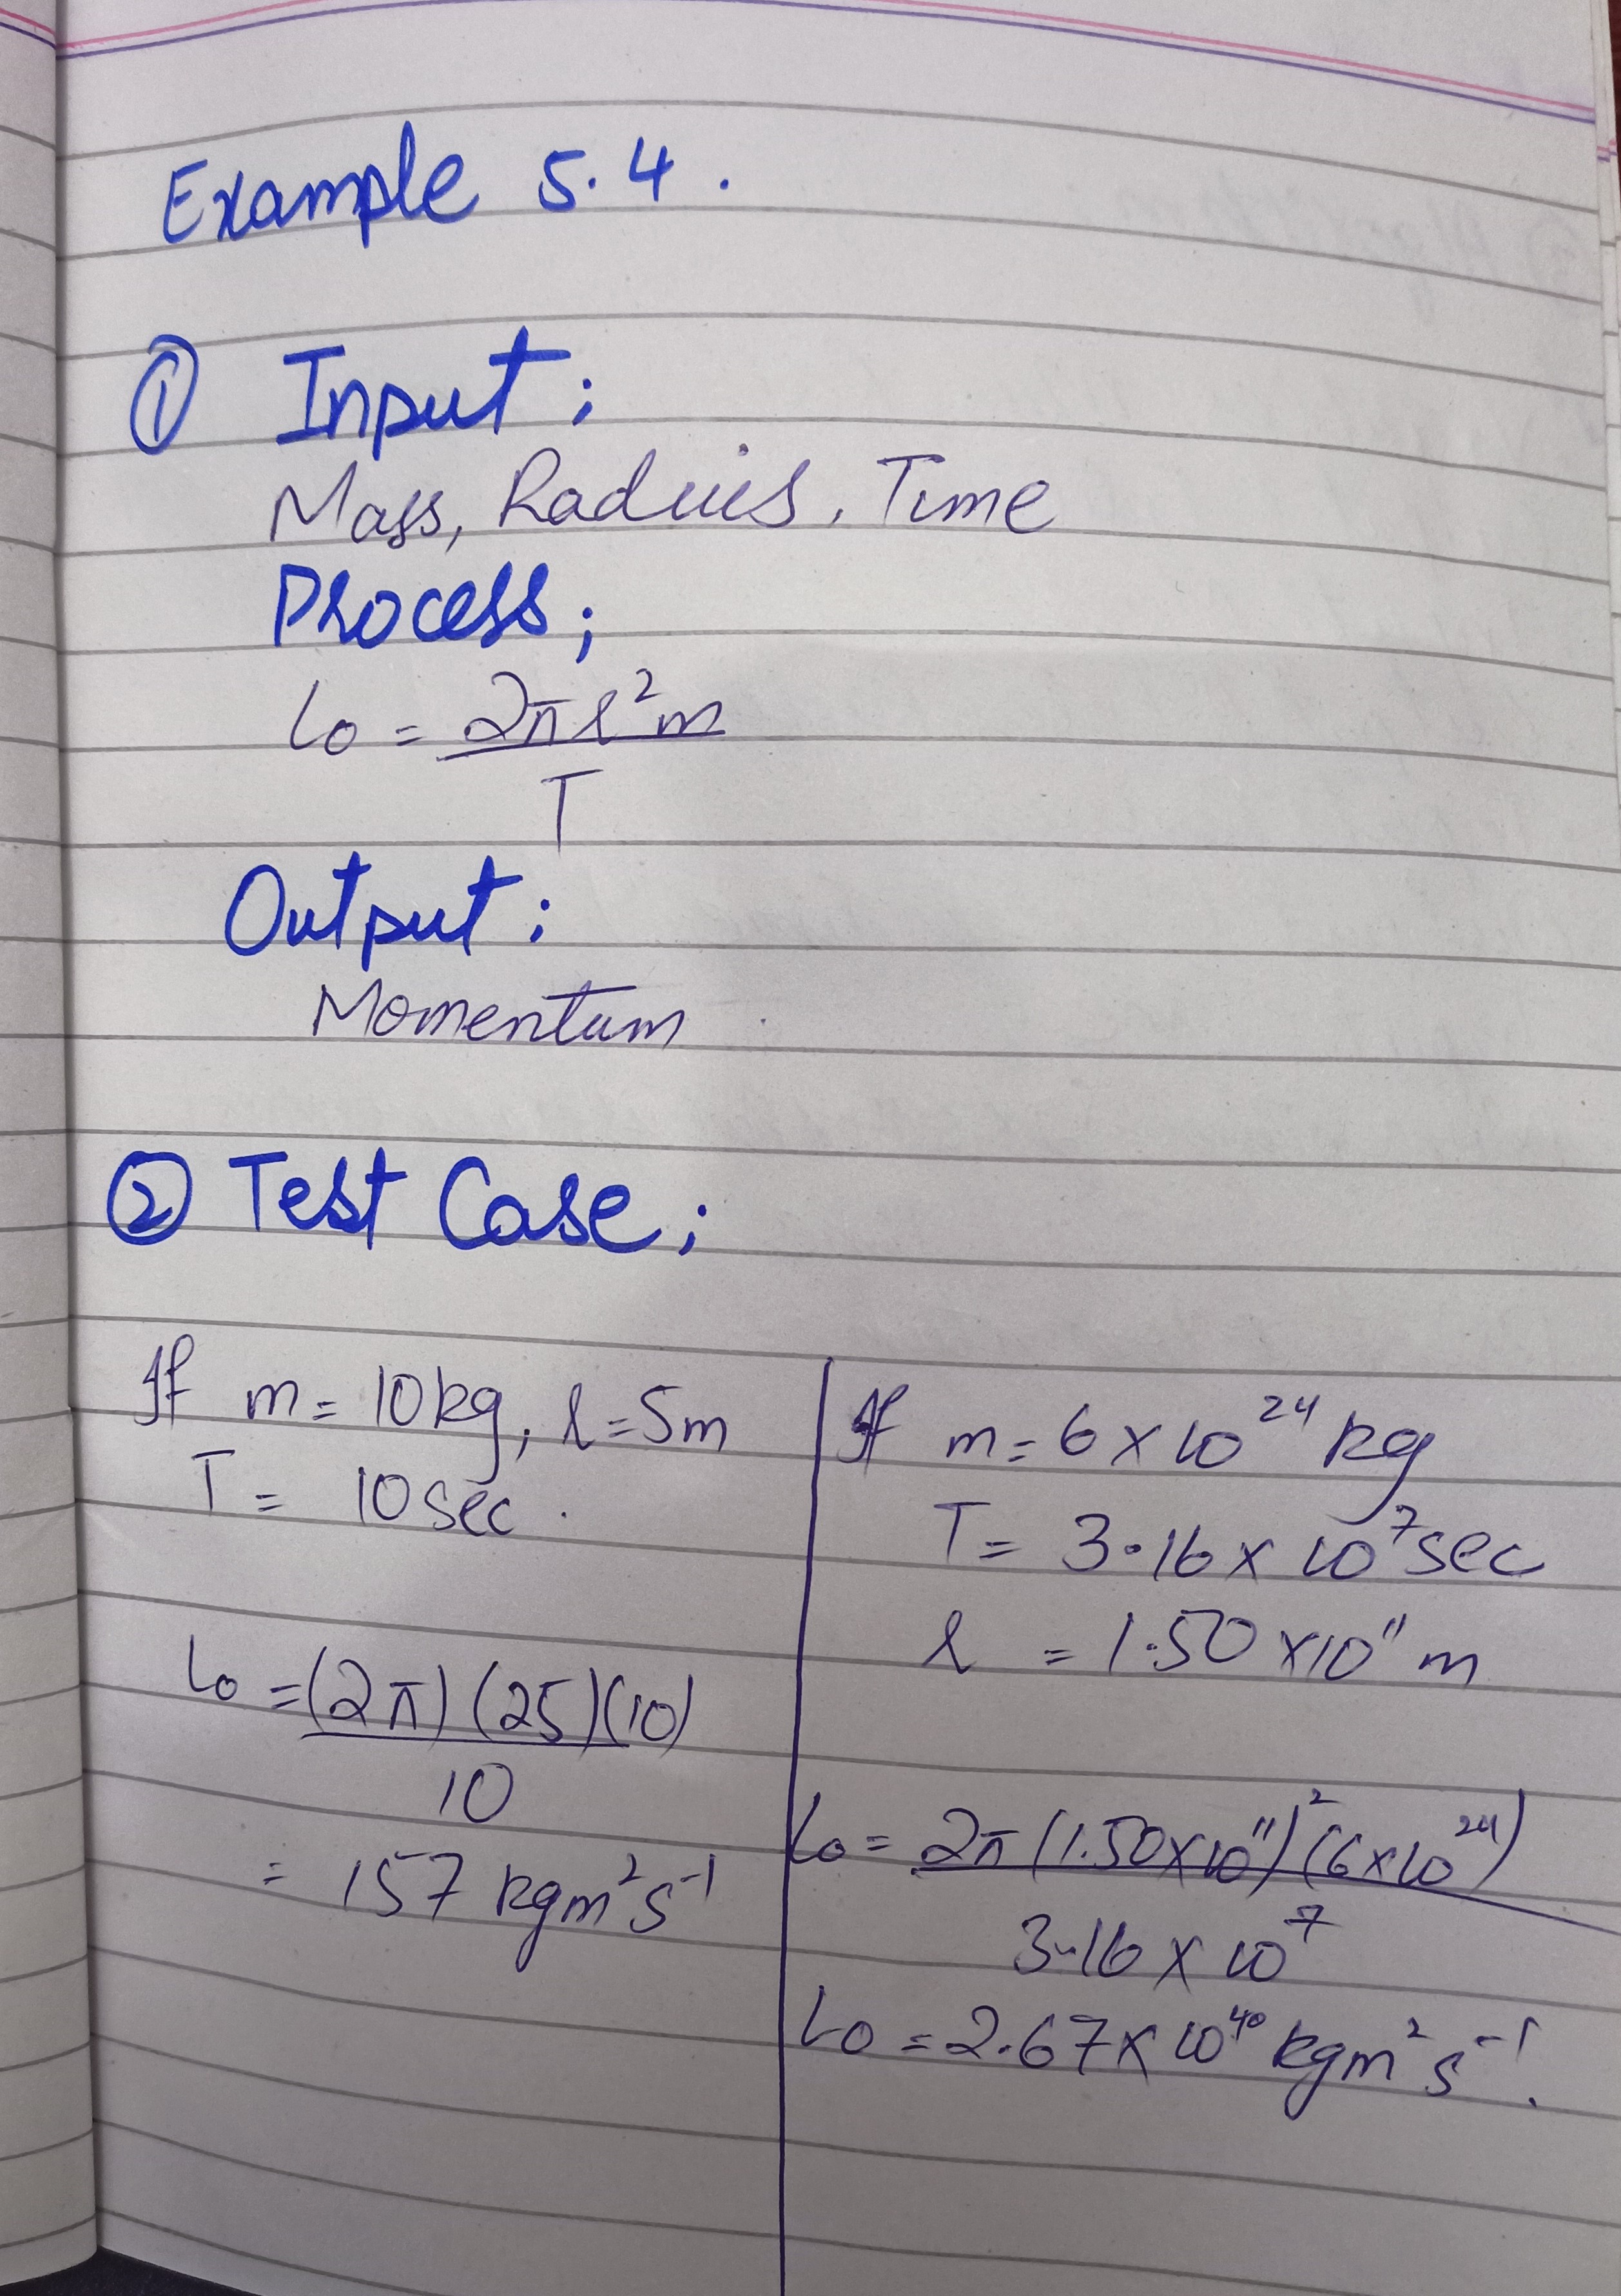 Example 5.4.
① Input:
Mass, Radius, Time
Process;
L₀ = 2πr²m
T
Output:
Momentum
② Test Case;
If m = 10kg, r = 5m
T = 10 sec.
L₀ = (2π)(25)(10)
10
= 157 kgm²s⁻¹
If m = 6 × 10²⁴ kg
T = 3.16 × 10⁷ sec
r = 1.50 × 10¹¹ m
L₀ = 2π(1.50×10¹¹)²(6×10²⁴)
3.16 × 10⁷
L₀ = 2.67 × 10⁴⁰ kgm²s⁻¹.